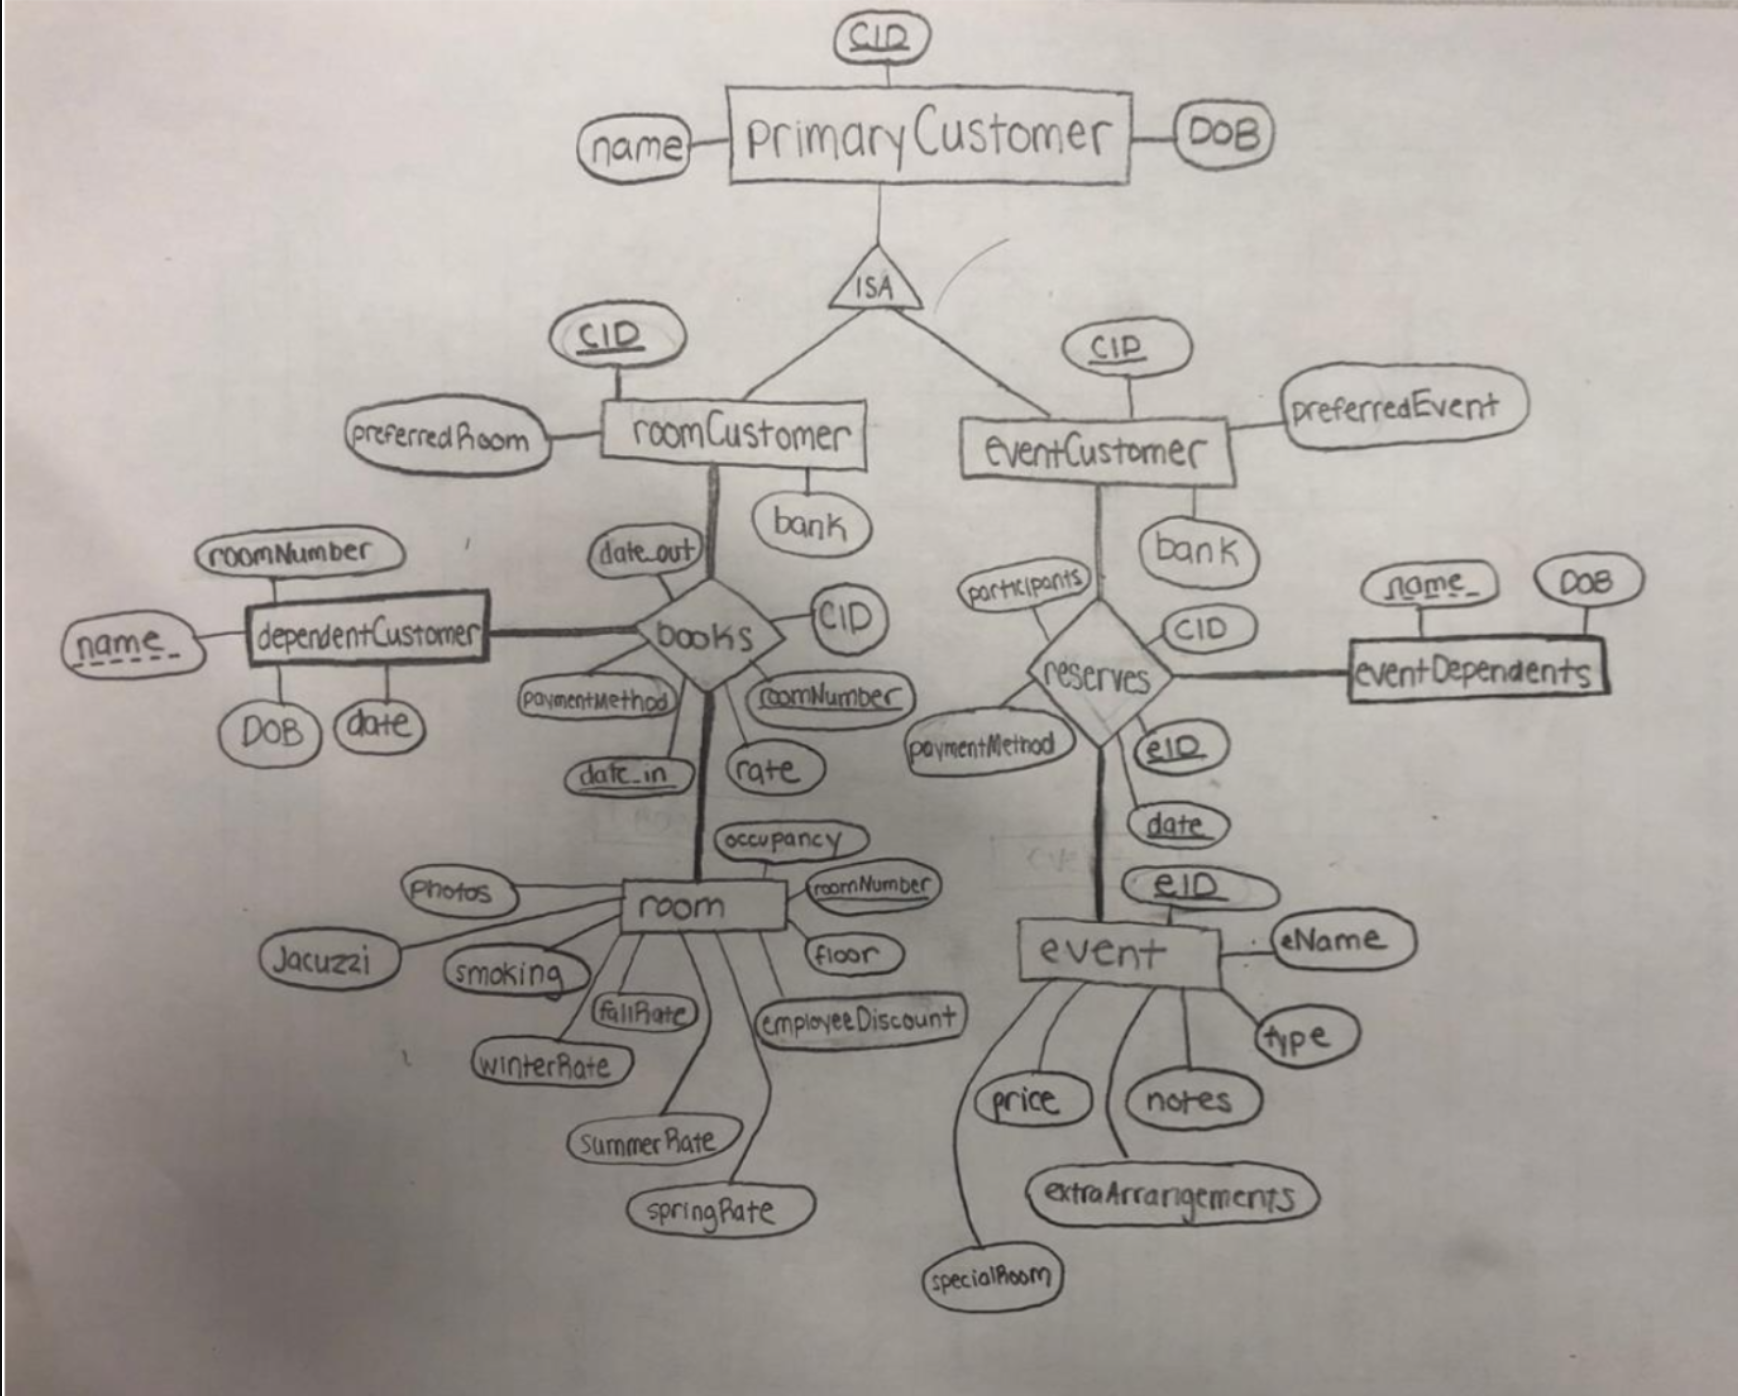 CID
name
primaryCustomer
DOB
ISA
CID
preferredRoom
roomCustomer
bank
CID
preferredEvent
eventCustomer
bank
roomNumber
name
dependentCustomer
DOB
date
date_out
books
CID
paymentMethod
roomNumber
date_in
rate
participants
reserves
CID
paymentMethod
eID
date
name
DOB
eventDependents
occupancy
photos
room
roomNumber
Jacuzzi
smoking
floor
fallRate
employeeDiscount
winterRate
summerRate
springRate
eID
event
eName
type
price
notes
extraArrangements
specialRoom